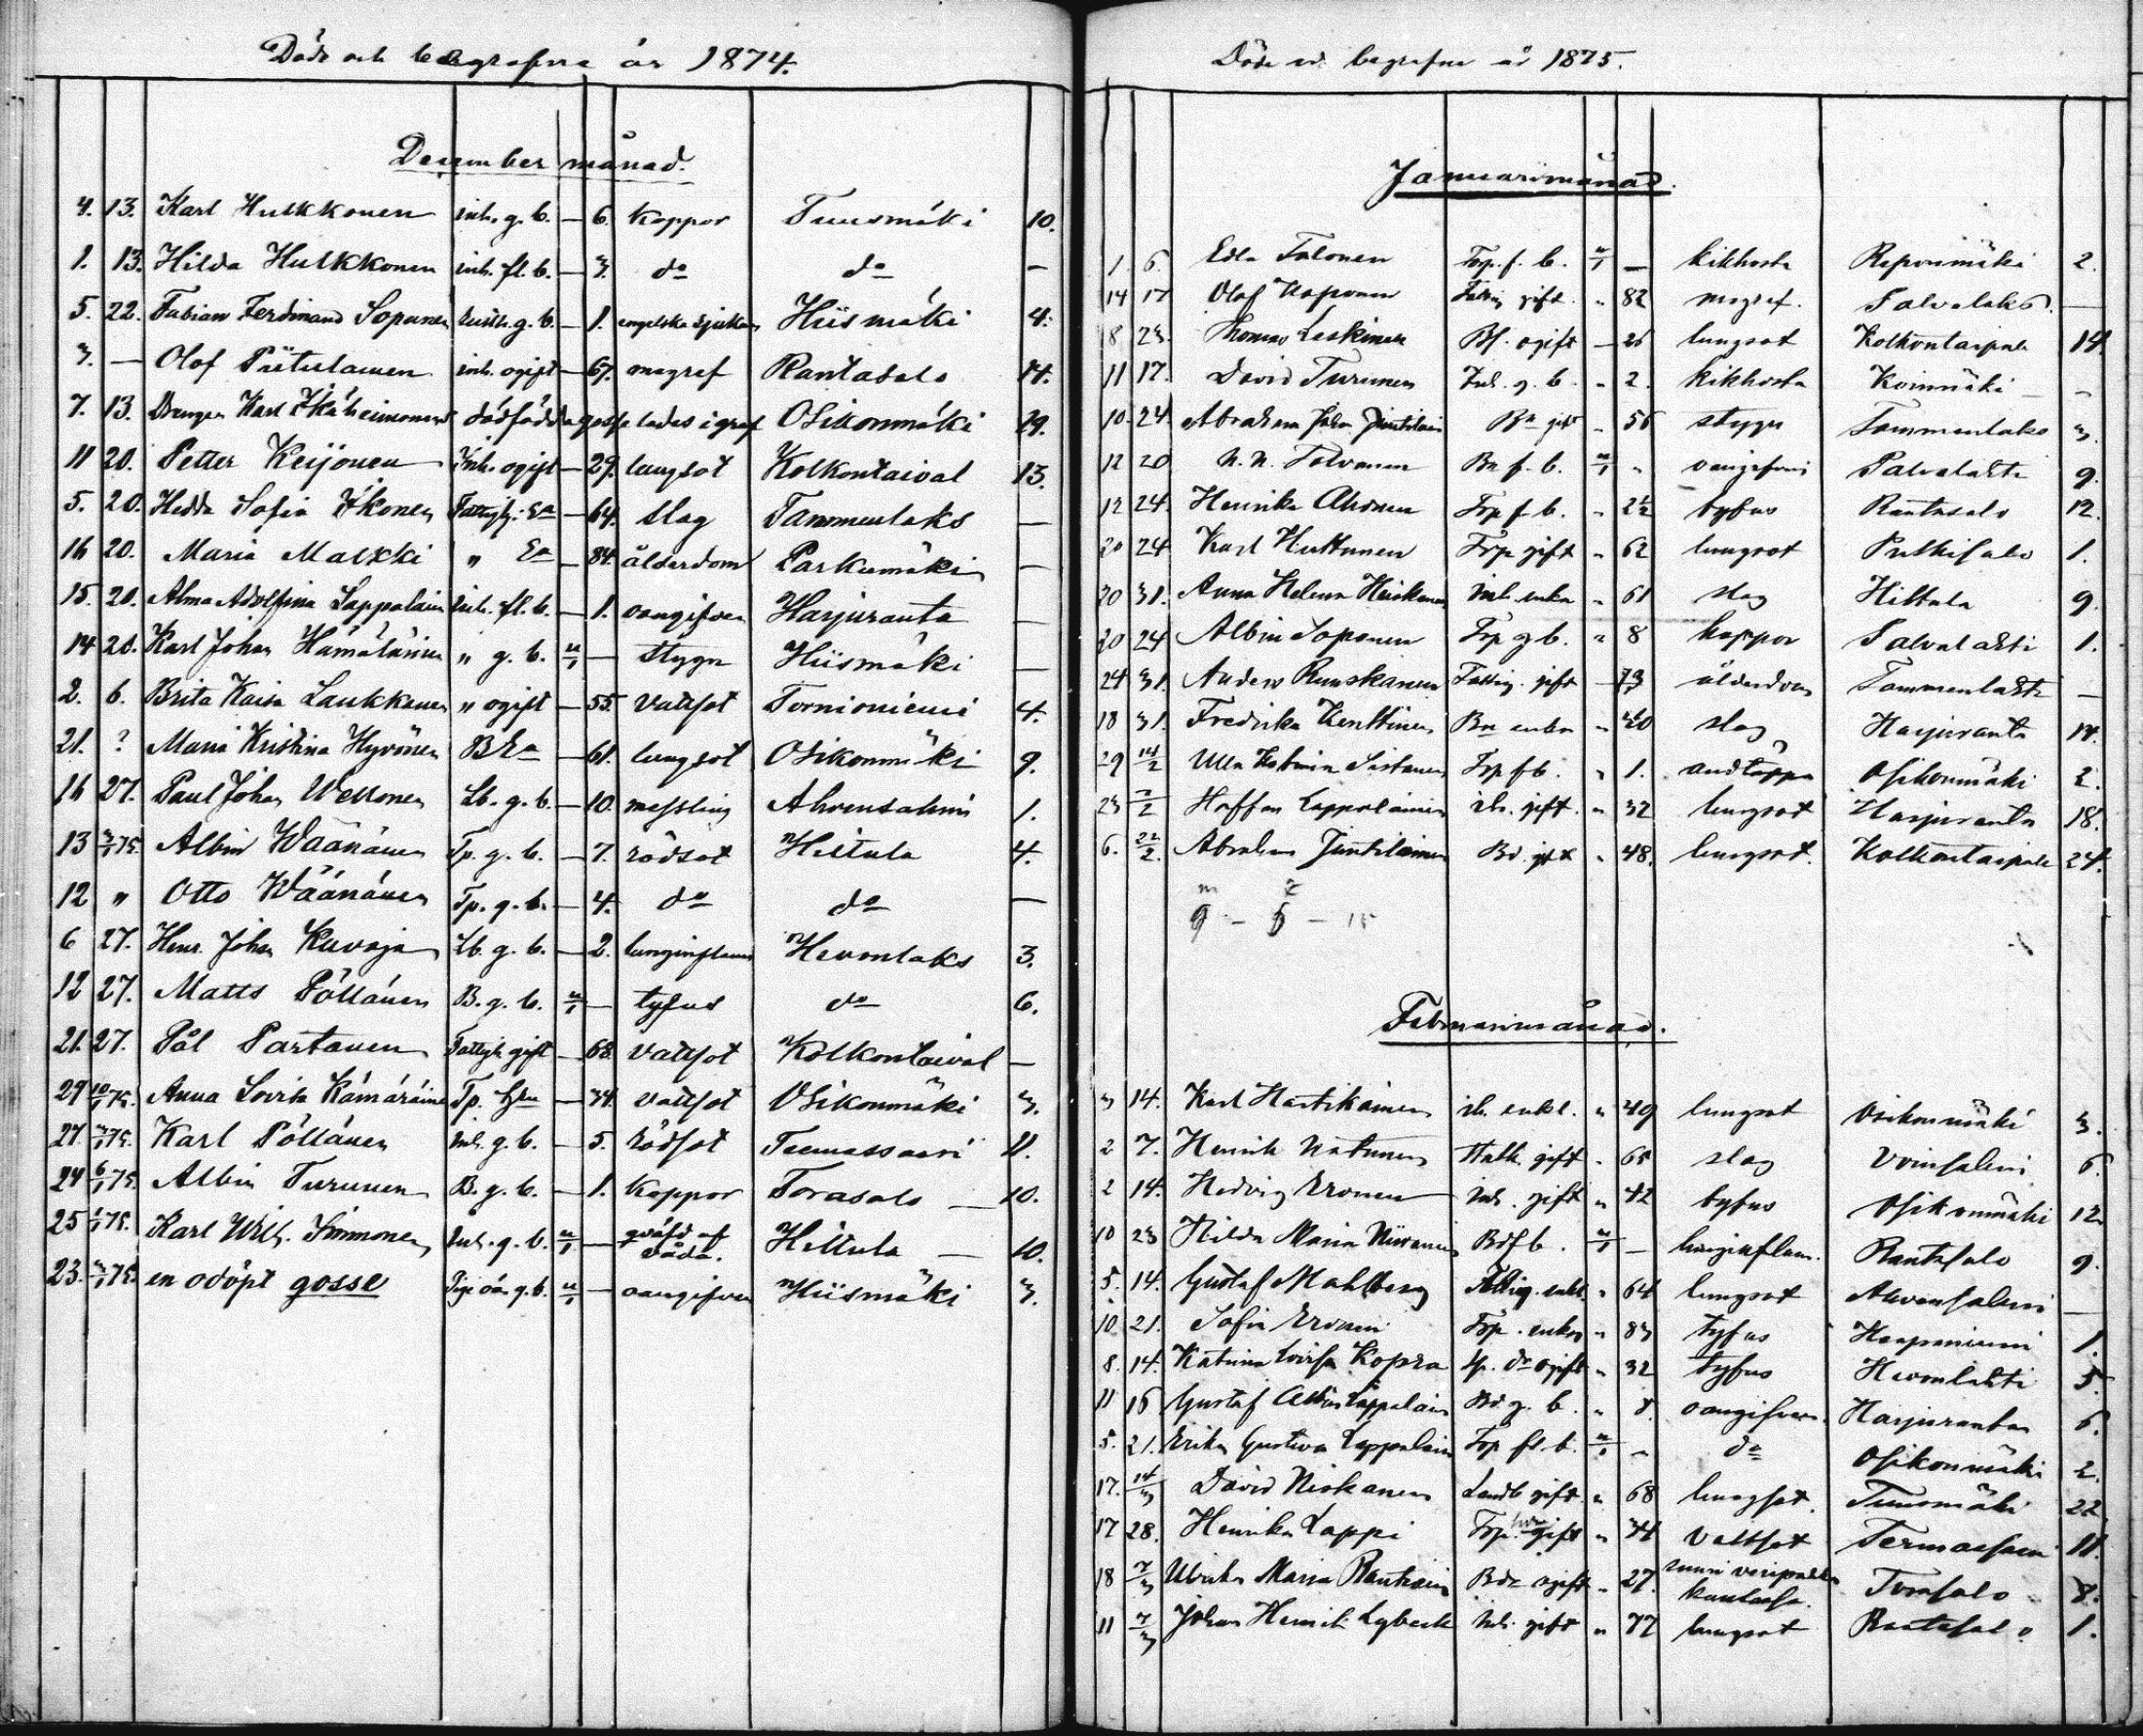 Döde och begrafne år 1874.
December månad.
4. 13. Karl Hulkkonen inh. g. b. — 6. koppor Tuusmäki 10.
1. 13. Hilda Hulkkonen inh. fl. b. — 3. do do —
5. 22. Fabian Ferdinand Sopanen g. b. — 1. engelska sjukan Hiismäki 4.
3. — Olof Piitulainen inh. ogift — 67. magref Rantasalo 14.
7. 13. Drengen Karl dödfödda gosse lades i graf Osikonmäki 29.
11 20. Petter Keijonen Inh. ogift — 29. lungsot Kolkontaival 13.
5. 20. Hedda Sofia Ikonen Fattighj. Ea — 64. slag Tammenlaks —
16 20. Maria Malxki " Ea — 84. ålderdom Parkumäki —
15. 20. Alma Adolfina Lappalain inh. fl. b. — 1. oangifven Harjuranta —
14 20. Karl Johan Hämäläinen " g. b. u/1 — stygn Hiismäki —
2. 6. Brita Kaisa Laukkanen " ogift — 55. vattsot Tornioniemi 4.
21. ? Maria Kristina Hyvönen B Ea — 61. lungsot Osikonmäki 9.
16 27. Paul Johan Wellonen Lb. g. b. — 10. messling Ahvensalmi 1.
13 3/1 75. Albin Wäänänen Tp. g. b. — 7. rödsot Hiltula 4.
12 " Otto Wäänänen Tp. g. b. — 4. do do —
6 27. Henr. Johan Kuvaja Lb. g. b. — 2. lunginflam Hevonlaks 3.
12 27. Matts Pöllänen B. g. b. u/1 — tyfus do 6.
21. 27. Pål Partanen Fattighj. gift — 68. vattsot Kolkontaival —
29 10/1 75. Anna Lovisa Kämäräine Tp. hu — 34. vattsot Osikonmäki 3.
27. 3/1 75. Karl Pöllänen inh. g. b. — 5. rödsot Teemassaari 11.
24 6/1 75. Albin Turunen B. g. b. — 1. koppor Torasalo — 10.
25 1/1 75. Karl Wilh. Simmonen Inh. g. b. u/1 — qväfd af våda. Hiltula — 10.
23. 3/1 75. en odöpt gosse oä. g. b. u/1 — oangifven Hiismäki 3.
Döde och begrafne år 1875.
Januarimånad.
1. 6. Edla Talonen Torp. f. b. u/1 — kikhosta Reponmäki 2.
14 17 Olof Koponen Fattig gift. " 82 magref. Salvalaks —
8 23. Thomas Leskinen Bf. ogift — 26 lungsot Kolkontaipale 14.
11 17. David Turunen Inh. g. b. " 2. kikhosta Koinmäki —
10. 24. Abraham Johan Jäntilain Bn gift " 56 stygn Tammenlaks 3.
12 20 N. N. Tolvanen Bn f. b. u/1 " oangifven Palvalahti 9.
12 24. Henrika Ahonen Torp f b. " 2½ tyfus Rantasalo 12.
20 24 Karl Huttunen Torp gift " 62 lungsot Pitkisalo 1.
20 31. Anna Helena Heiskanen inh. enka " 61 slag Hiltula 9.
20 24 Albin Soponen Torp g b. " 8 koppor Salvalahti 1.
24 31. Anders Ruuskanen Fattig. gift — 73 ålderdom Tammenlahti —
18 31. Fredrika Kenttinen Bn enka " 40 slag Harjuranta 14.
29 14/2 Ulla Katarina Torp f b. " 1. andtäppa Osikonmäki 2.
23 7/2 Staffan Lappalainen inh. gift. " 32 lungsot Harjuranta 18.
6. 22/2. Abraham Jäntilainen Bd. gift " 48. lungsot. Kolkontaipale 24.
m q
9 — 6 — 15
Februarimånad.
3 14. Karl Hartikainen inh. enkl. " 49 lungsot Osikonmäki 3.
2 7. Henrik Natunen gift " 65 slag Voinsalmi 6.
2 14. Hedvig Eronen inh. gift " 42 tyfus Osikonmäki 12
10 23 Hilda Maria Bd f b. u/1 — lunginflam. Rantasalo 9.
5. 14. Gustaf Mahlberg Fattig. enkl. " 64 lungsot Ahvensalmi —
10. 21. Sofia Eronen Torp. enka " 83 tyfus Haapaniemi 1.
8. 14. Katrina Lovisa Kopra tp. dr ogift " 32 tyfus Hevonlahti 5.
11 16 Gustaf Albin Lappalain Bd g. b. " 8. oangifven. Harjuranta 6.
5. 21. Erika Gustava Lappalain Torp fl. b. u/1 " do Osikonmäki 2.
17. 14/3 David Niskanen Landb gift. " 68 lungsot. Tuusmäki 22
17 28. Henrika Lappi Torp hu gift " 34 vattsot Termassaari 11.
18 7/3 Ulrika Maria Rautiain Bdr ogift " 27. suuri veripahka kaulassa. Torasalo 8.
11 7/3 Johan Henrik Lybeck inh. gift " 77 lungsot Rantasalo 1.